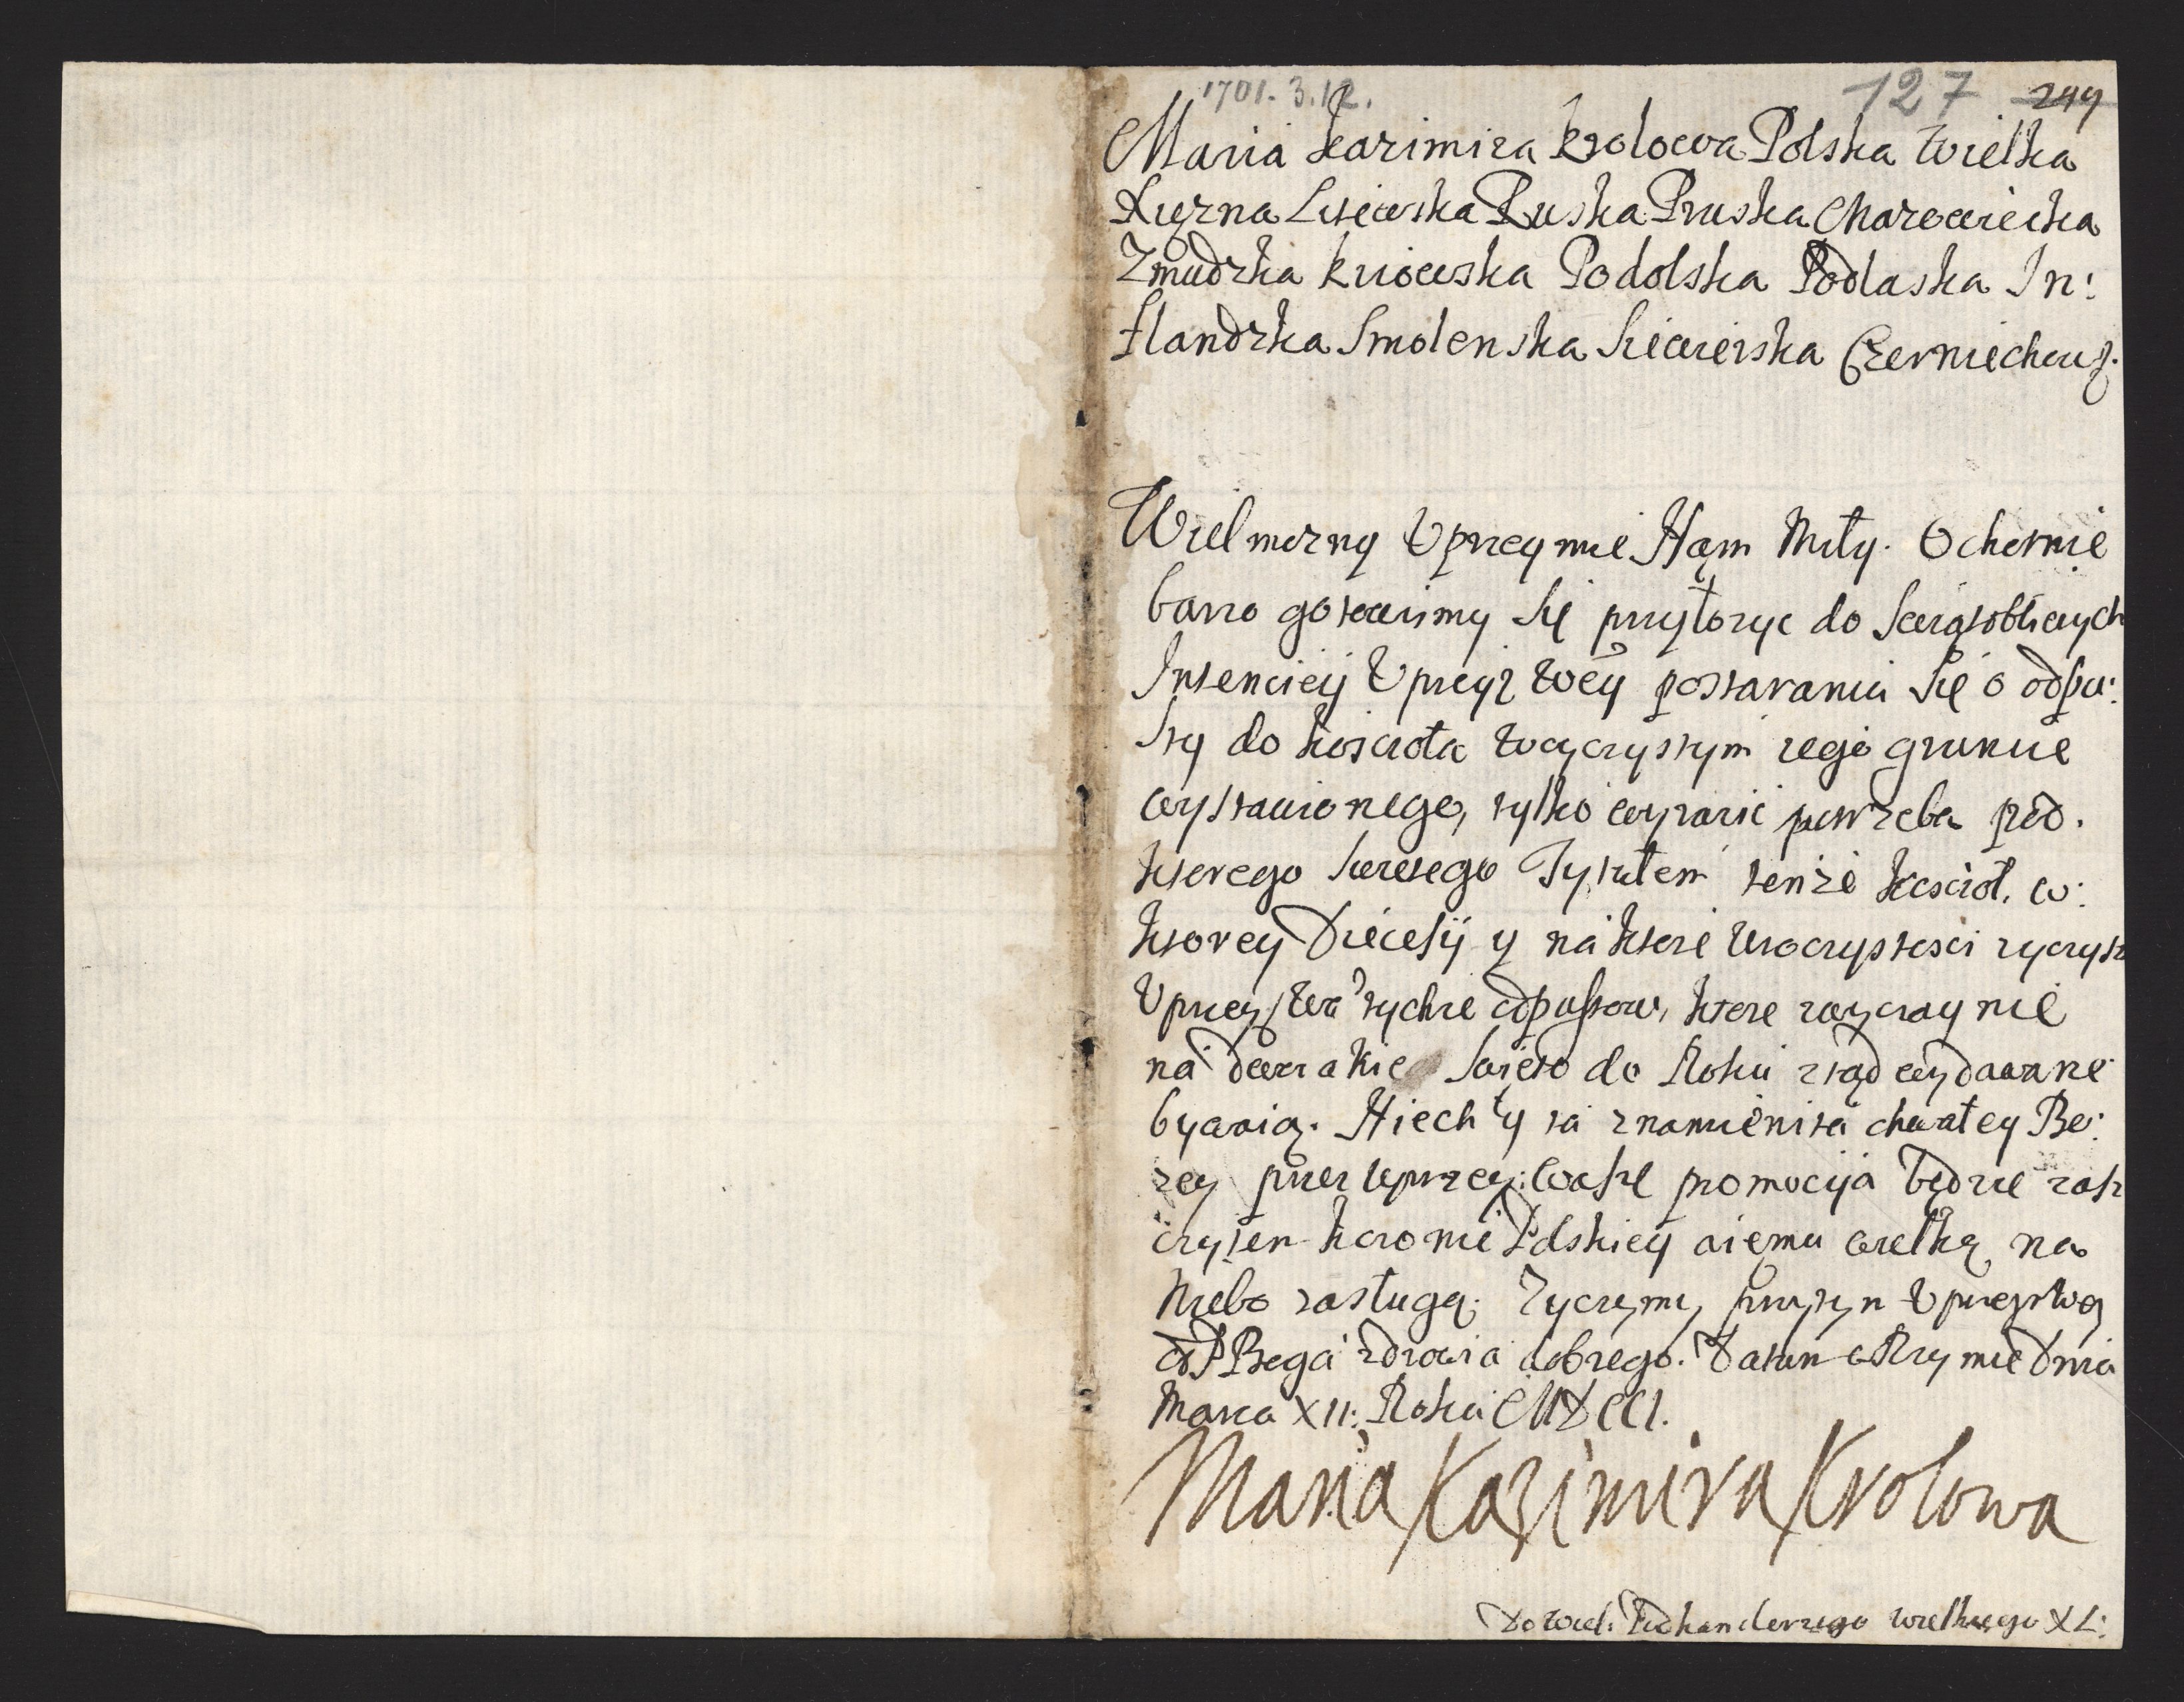 1701. 3. 12.
127 244
Maria Kazimira Krolowa Polska Wielka
Xięzna Litewska Ruska Pruska Mazowiecka
Zmudzka Kiiowska Podolska Podlaska In:
flandzka Smolenska Siewierska Czerniechows:
Wielmozny Uprzeymie Nam Miły. Ochotnie
barzo gotowismy się przyłozyc do swiątobliwych
Intenciey Uprzeyz Wey postarania się o odpu:
sty do koscioła w oyczystym iego gruncie
wystawionego, tylko wyrazić potrzeba pod.
ktorego Swietego Tytułem tenże kosciół. w:
ktorey Diecesij y na ktore Uroczystosci zyczysz
Uprzeyz Wa tychze odpustow, ktore zwyczaynie
na dwoiakie Swieto do Roku ztąd wydawane
bywaią. Niech ty ta znamienita chwałey Bo:
zey przez Uprzey: Wasze promocija będzie zasz
czytem Koronie Polskiey a iemu wielką na
Niebo zasługą. Zyczymy przytym Uprzeyz Wey
od P Boga zdrowia dobrego. Datum w Rzymie Dnia
Marca XII: Roku MDCCI.
Maria Kazimira Krolowa
Do Wiel: Podkanclerzego Wielkiego XL: